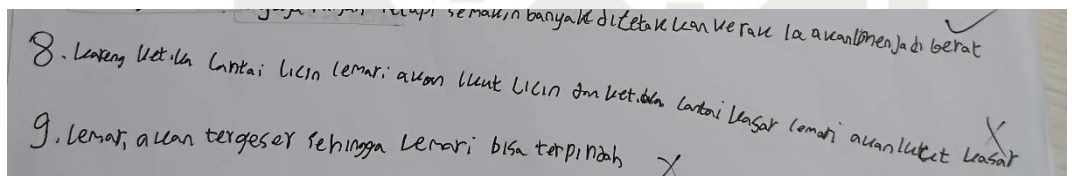 tetapi semakin banyak diletakkan kerak Ia akan menjadi berat
8. Kareng ketika Lantai Licin lemari akan Ikut Licin dan ketika Lantai kasar lemari akan Ikut kasar
9. Lemari akan tergeser sehingga Lemari bisa terpindah